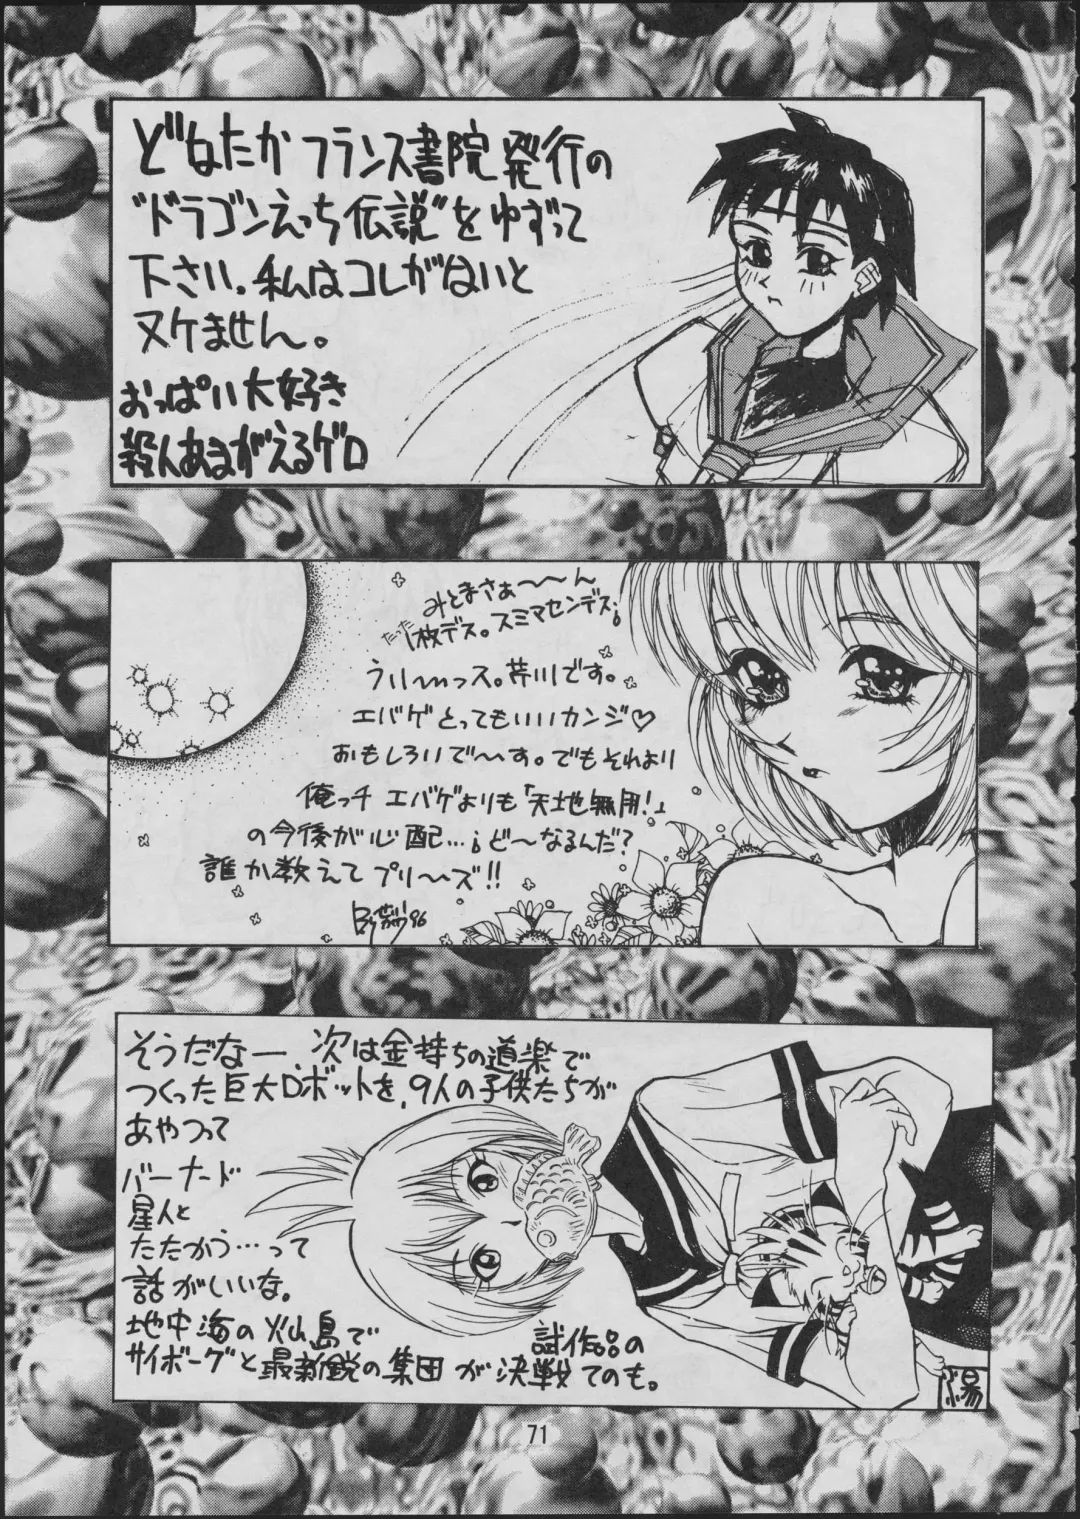 どなたかフランス書院発行の
"ドラゴンえっち伝説"をゆずって
下さい。私はコレがないと
ヌケません。
おっぱい大好き
殺人あまがえるゲロ
みとまさぁ〜〜ん
たった1枚デス。スミマセンデス;
うい〜〜っス。芹川です。
エバゲとってもいいカンジ♡
おもしろいで〜〜す。でもそれより
俺っチ エバゲよりも「天地無用!」
の今後が心配…;ど〜なるんだ?
誰か教えてプリ〜〜ズ!!
96
そうだなー、次は金持ちの道楽で
つくった巨大ロボットを、9人の子供たちが
あやつって
バーナード
星人と
たたかう…って
話がいいな。
地中海の火山島で
サイボーグと最新鋭の集団が決戦てのも。
試作品の
71